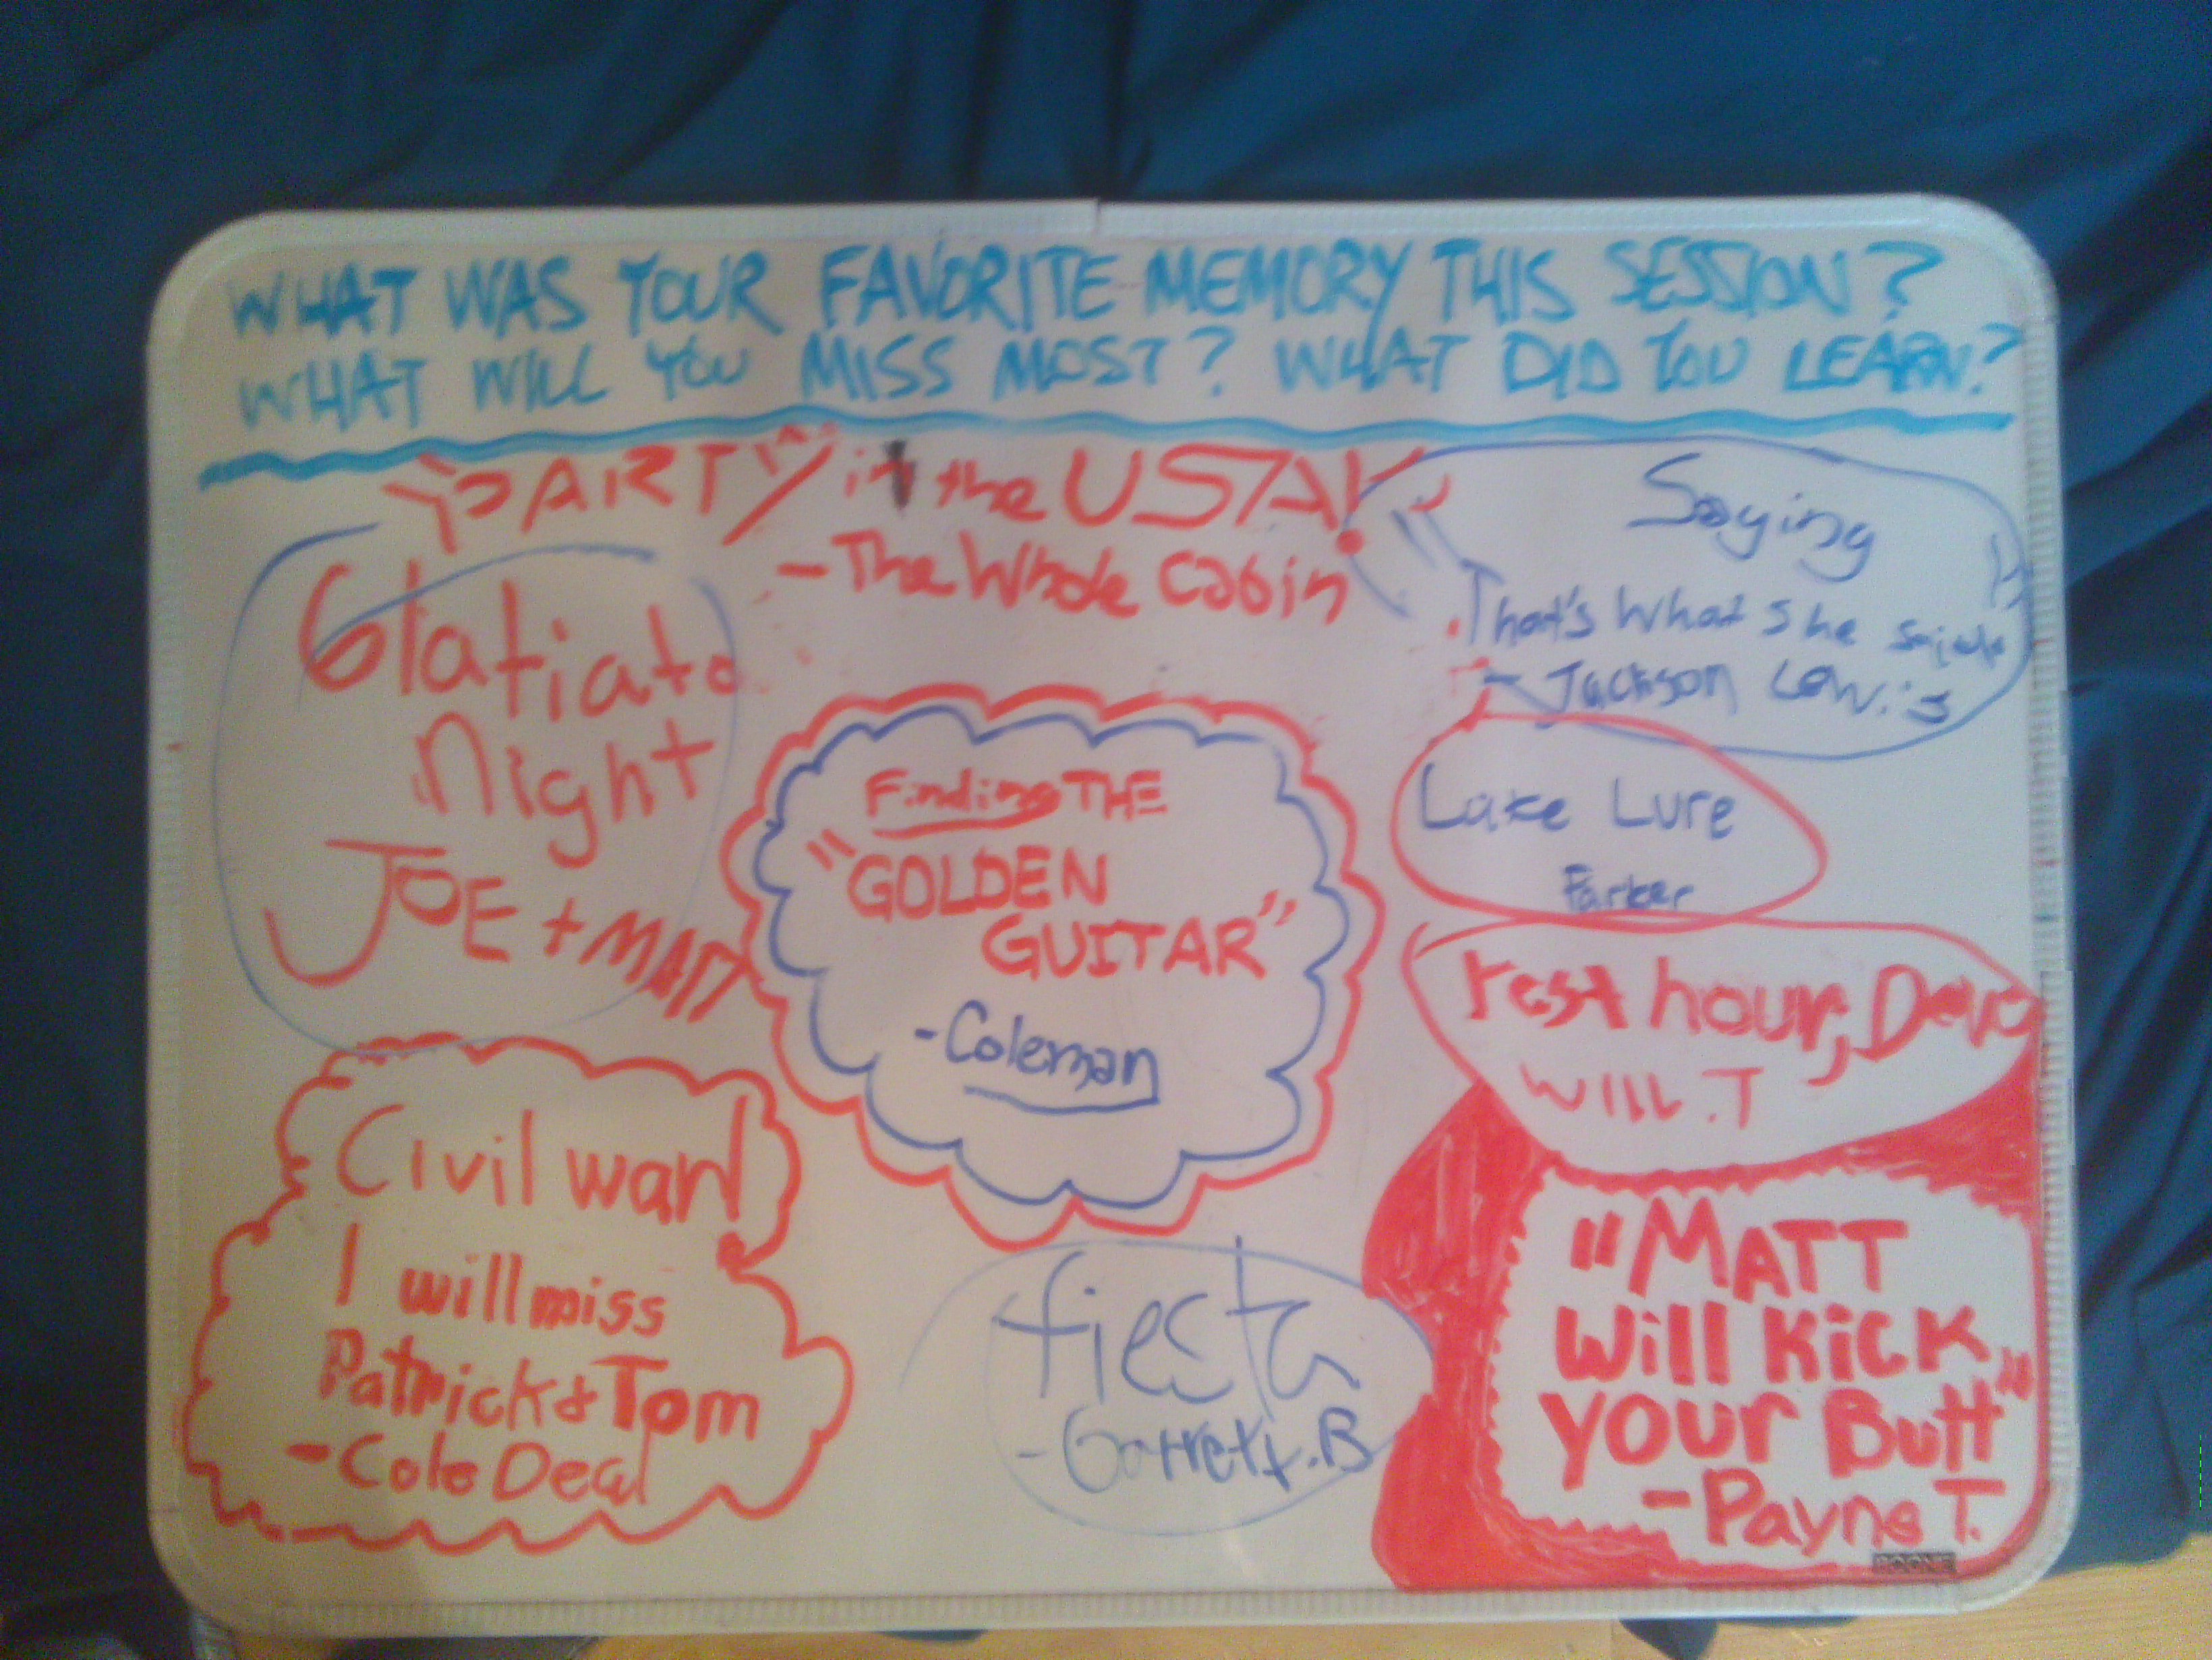 WHAT WAS YOUR FAVORITE MEMORY THIS SESSION?
WHAT WILL YOU MISS MOST? WHAT DID YOU LEARN?
"PARTY in the USA!"
- The Whole Cabin
Glatiato
Night
JOE + MATT
"Saying
That's What She Said"
- Jackson Lewis
Finding THE
"GOLDEN
GUITAR"
- Coleman
Lake Lure
Parker
rest hour, Devo
WILL.T
Civil war!
I will miss
Patrick & Tom
- Cole Deal
fiesta
- Garrett.B
"MATT
Will Kick
your Butt"
- Payne T.
BOONE